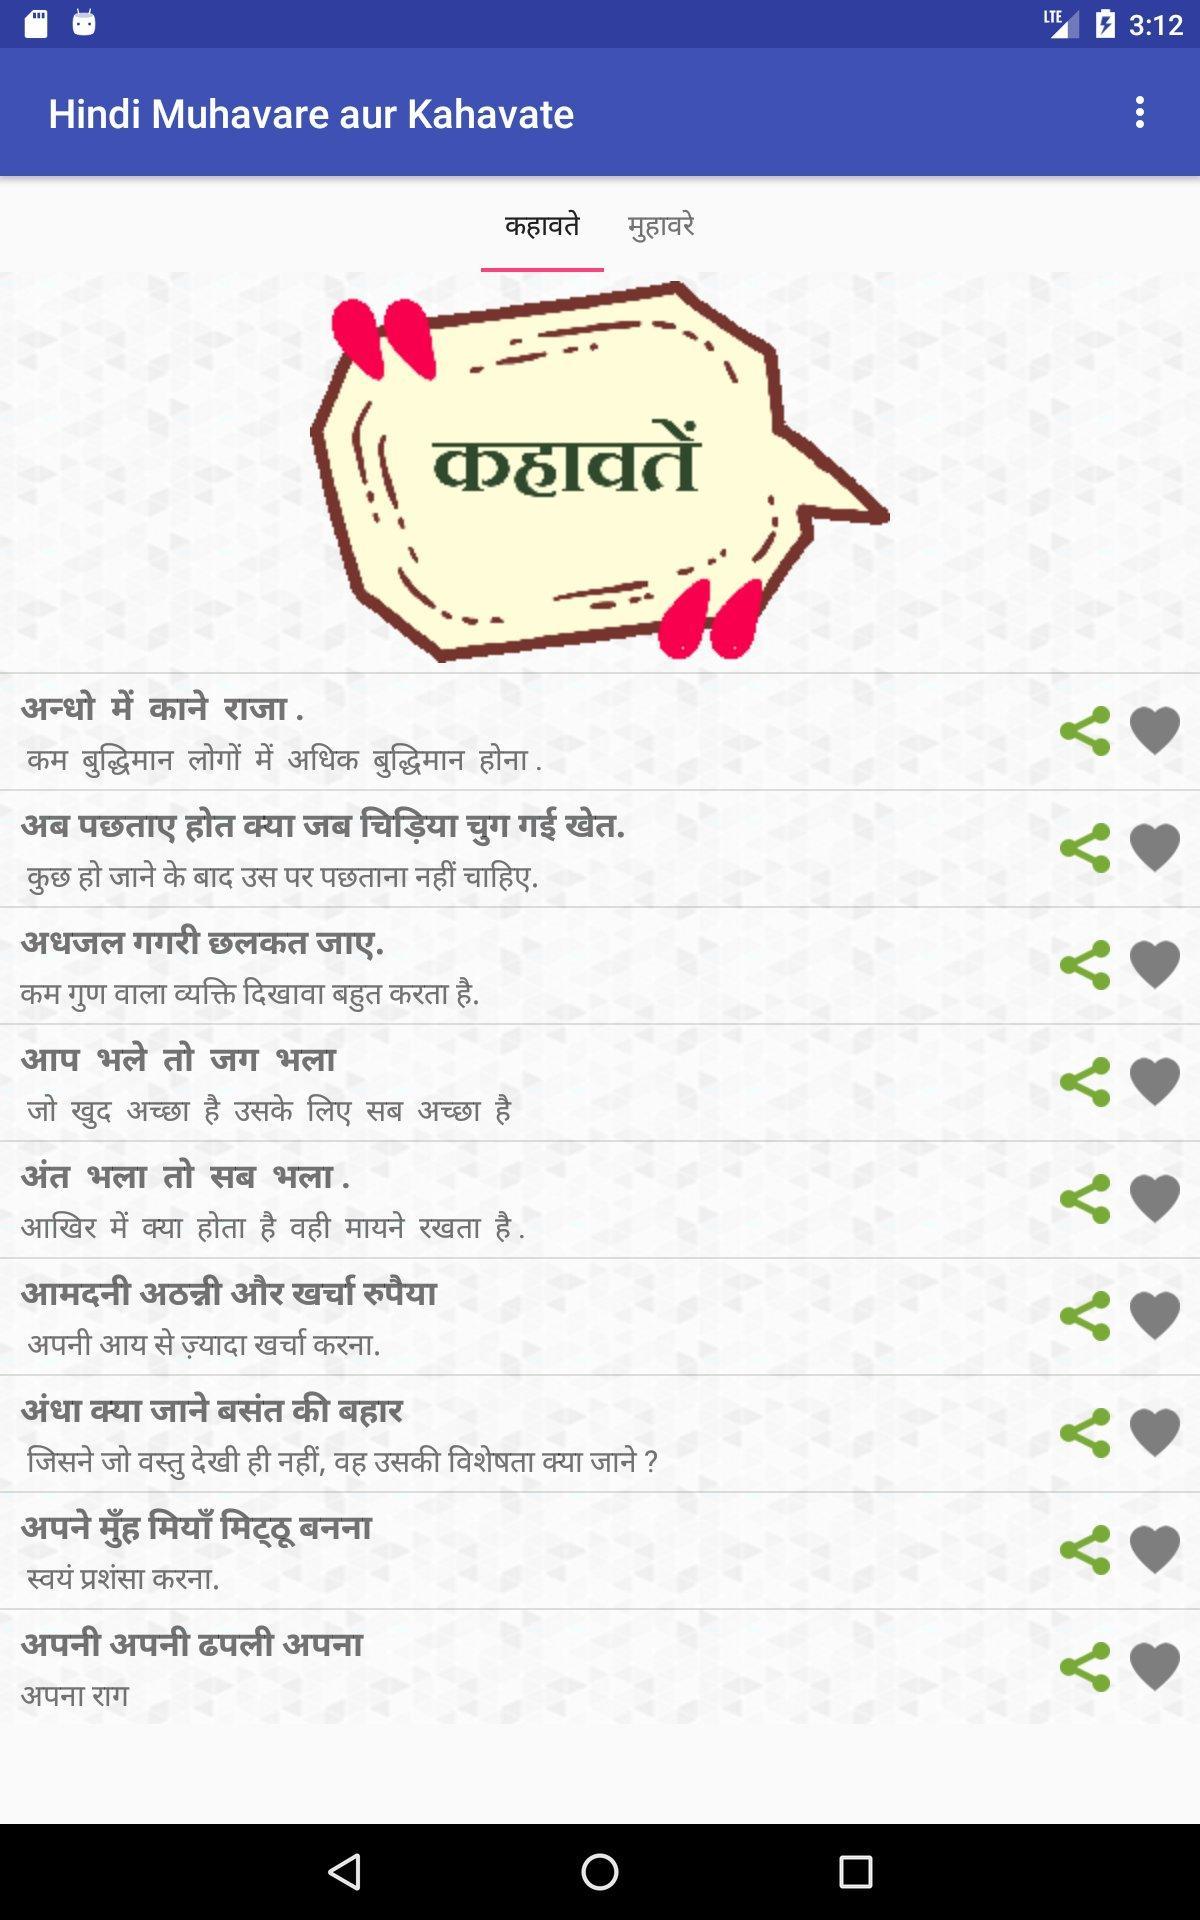 LTE 3:12
Hindi Muhavare aur Kahavate
कहावते मुहावरे
कहावतें
अन्धो में काने राजा .
कम बुद्धिमान लोगों में अधिक बुद्धिमान होना .
अब पछताए होत क्या जब चिड़िया चुग गई खेत.
कुछ हो जाने के बाद उस पर पछताना नहीं चाहिए.
अधजल गगरी छलकत जाए.
कम गुण वाला व्यक्ति दिखावा बहुत करता है.
आप भले तो जग भला
जो खुद अच्छा है उसके लिए सब अच्छा है
अंत भला तो सब भला .
आखिर में क्या होता है वही मायने रखता है .
आमदनी अठन्नी और खर्चा रुपैया
अपनी आय से ज़्यादा खर्चा करना.
अंधा क्या जाने बसंत की बहार
जिसने जो वस्तु देखी ही नहीं, वह उसकी विशेषता क्या जाने ?
अपने मुँह मियाँ मिट्ठू बनना
स्वयं प्रशंसा करना.
अपनी अपनी ढपली अपना
अपना राग